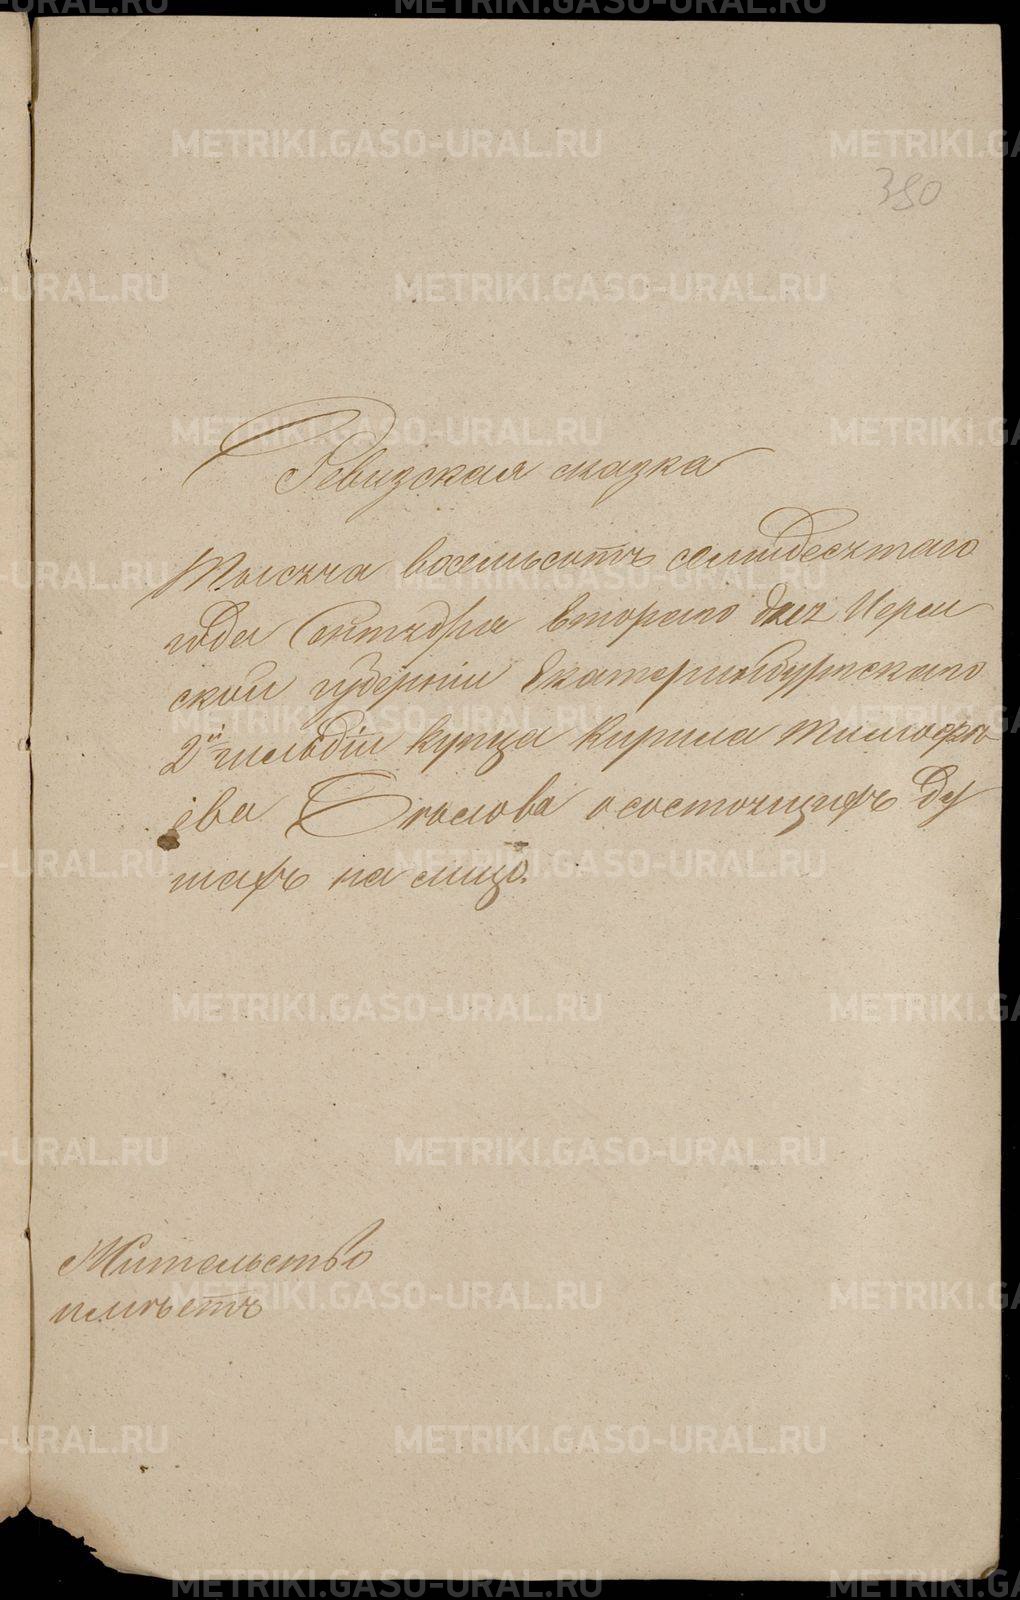 380
Ревизская сказка
Тысяча восемьсотъ семидесятаго
года Сентября втораго дня Перм
ской губерніи Екатеринбургскаго
2й гильдіи купца Кирила Тимофѣ
ева о состоящихъ ду
шахъ на лицо.
Жительство
имѣетъ
METRIKI.GASO-URAL.RU